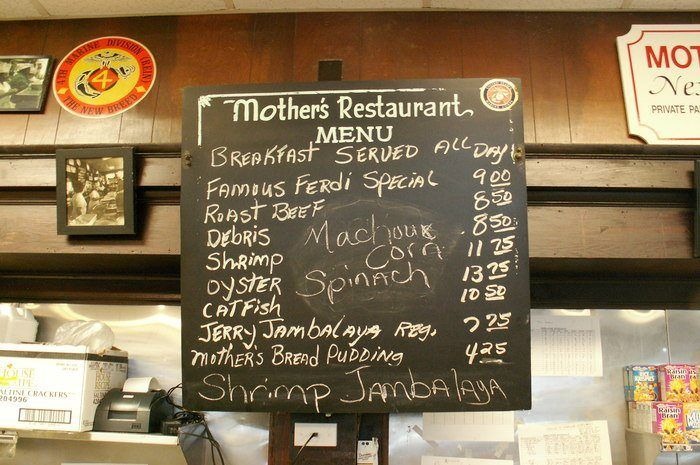 4TH MARINE DIVISION (REIN)
4
THE NEW BREED
Mother's Restaurant
MENU
BREAKFAST SERVED ALL DAY
FAMOUS FERDI SPECIAL 9 00
ROAST BEEF 8 50
DEBRIS 8 50
Shrimp 11 75
OYSTER 13 75
CATFISH 10 50
Machoux
Corn
Spinach
JERRY JAMBALAYA REG. 7 75
MOTHER'S BREAD PUDDING 4 25
Shrimp Jambalaya
MOT
Ne
PRIVATE PA
204996
Raisin
Bran
Raisin
Bran